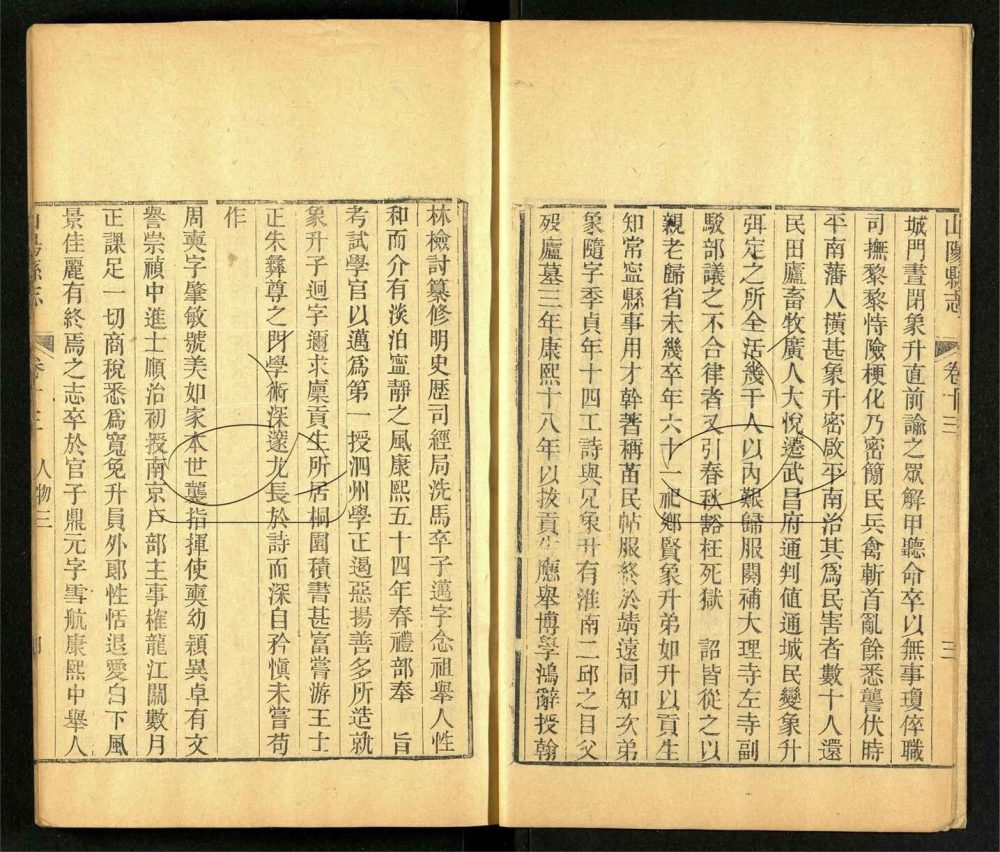 山陽縣志 卷十三 三
城門晝閉象升直前諭之眾解甲聽命卒以無事瓊倅職
司撫黎黎恃險梗化乃密簡民兵禽斬首亂餘悉讋伏時
平南藩人橫甚象升密啟平南治其為民害者數十人還
民田廬畜牧廣人大悅遷武昌府通判值通城民變象升
弭定之所全活幾千人以內艱歸服闋補大理寺左寺副
駁部議之不合律者又引春秋豁枉死獄 詔皆從之以
親老歸省未幾卒年六十一祀鄉賢象升弟如升以貢生
知常寧縣事用才幹著稱苗民帖服終於靖遠同知次弟
象隨字季貞年十四工詩與兄象升有淮南二邱之目父
歿廬墓三年康熙十八年以拔貢生應舉博學鴻辭授翰
林檢討纂修明史歷司經局洗馬卒子邁字念祖舉人性
和而介有淡泊寧靜之風康熙五十四年春禮部奉 旨
考試學官以邁為第一授泗州學正遏惡揚善多所造就
象升子迥字邇求廩貢生所居桐園積書甚富嘗游王士
正朱彝尊之門學術深邃尤長於詩而深自矜慎未嘗苟
作
周奭字肇敏號美如家本世襲指揮使奭幼穎異卓有文
譽崇禎中進士順治初授南京戶部主事榷龍江關數月
正課足一切商稅悉為寬免升員外郎性恬退愛白下風
景佳麗有終焉之志卒於官子鼎元字雪航康熙中舉人
山陽縣志 卷十三 人物三